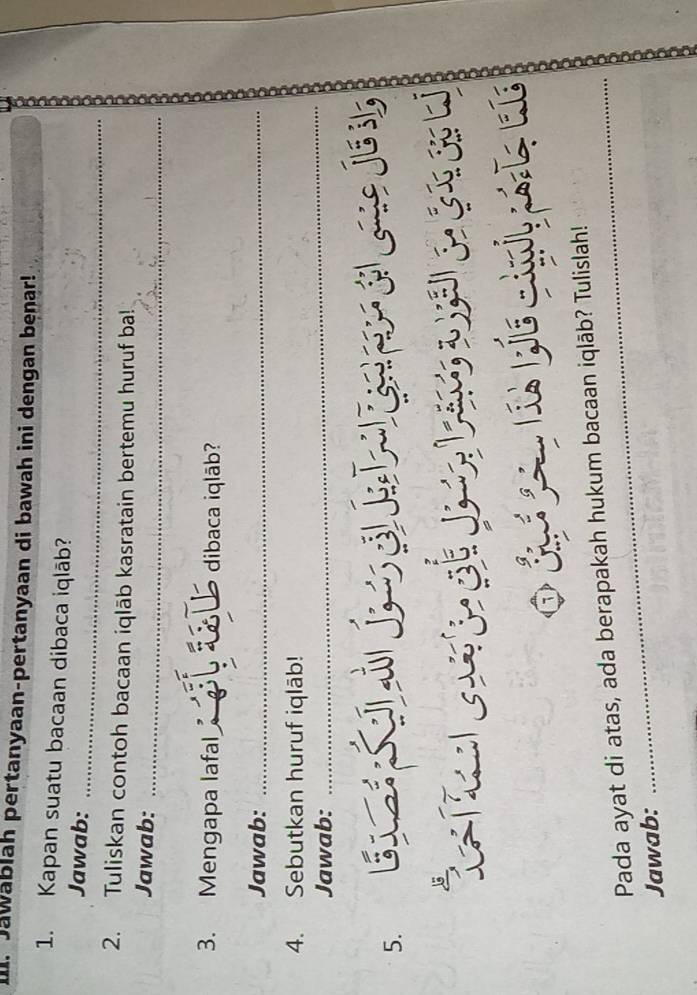 III. Jawablah pertanyaan-pertanyaan di bawah ini dengan benar!
1. Kapan suatu bacaan dibaca iqlāb?
Jawab:
2. Tuliskan contoh bacaan iqlāb kasratain bertemu huruf ba!
Jawab:
3. Mengapa lafal طَآئِفَةٌ بِاَنَّهُمْ dibaca iqlāb?
Jawab:
4. Sebutkan huruf iqlāb!
Jawab:
5. وَاِذْ قَالَ عِيْسَى ابْنُ مَرْيَمَ يٰبَنِيْٓ اِسْرَاۤءِيْلَ اِنِّيْ رَسُوْلُ اللّٰهِ اِلَيْكُمْ مُّصَدِّقًا
لِّمَا بَيْنَ يَدَيَّ مِنَ التَّوْرٰىةِ وَمُبَشِّرًاۢ بِرَسُوْلٍ يَّأْتِيْ مِنْۢ بَعْدِى اسْمُهٗٓ اَحْمَدُۗ
فَلَمَّا جَاۤءَهُمْ بِالْبَيِّنٰتِ قَالُوْا هٰذَا سِحْرٌ مُّبِيْنٌ ﴿٦﴾
Pada ayat di atas, ada berapakah hukum bacaan iqlāb? Tulislah!
Jawab: